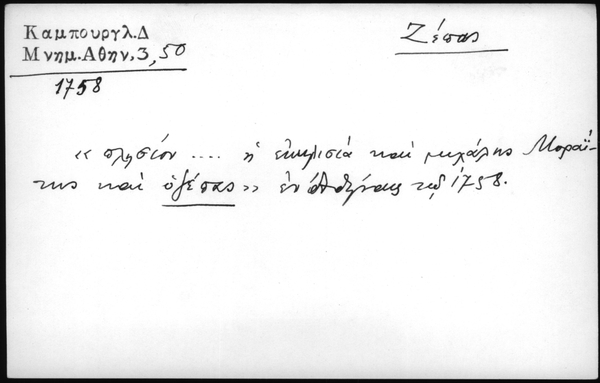 Καμπουργλ.Δ
Μνημ.Αθην.3,50
1758
Ζέπας
« πλησίον .... ἡ εκκλισιά καὶ μιχάλης Μοραΐ-
της καὶ ὁζέπας» ἐν Ἀθήναις τῷ 1758.